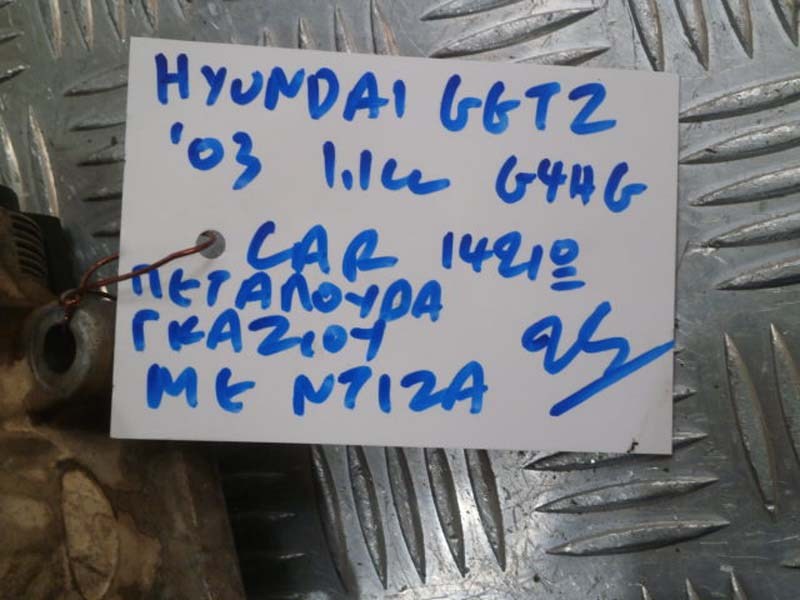 HYUNDAI GETZ
'03 1.1cc G4HG
CAR 14210
ΠΕΤΑΛΟΥΔΑ
ΓΚΑΖΙΟΥ
ΜΕ ΝΤΙΖΑ